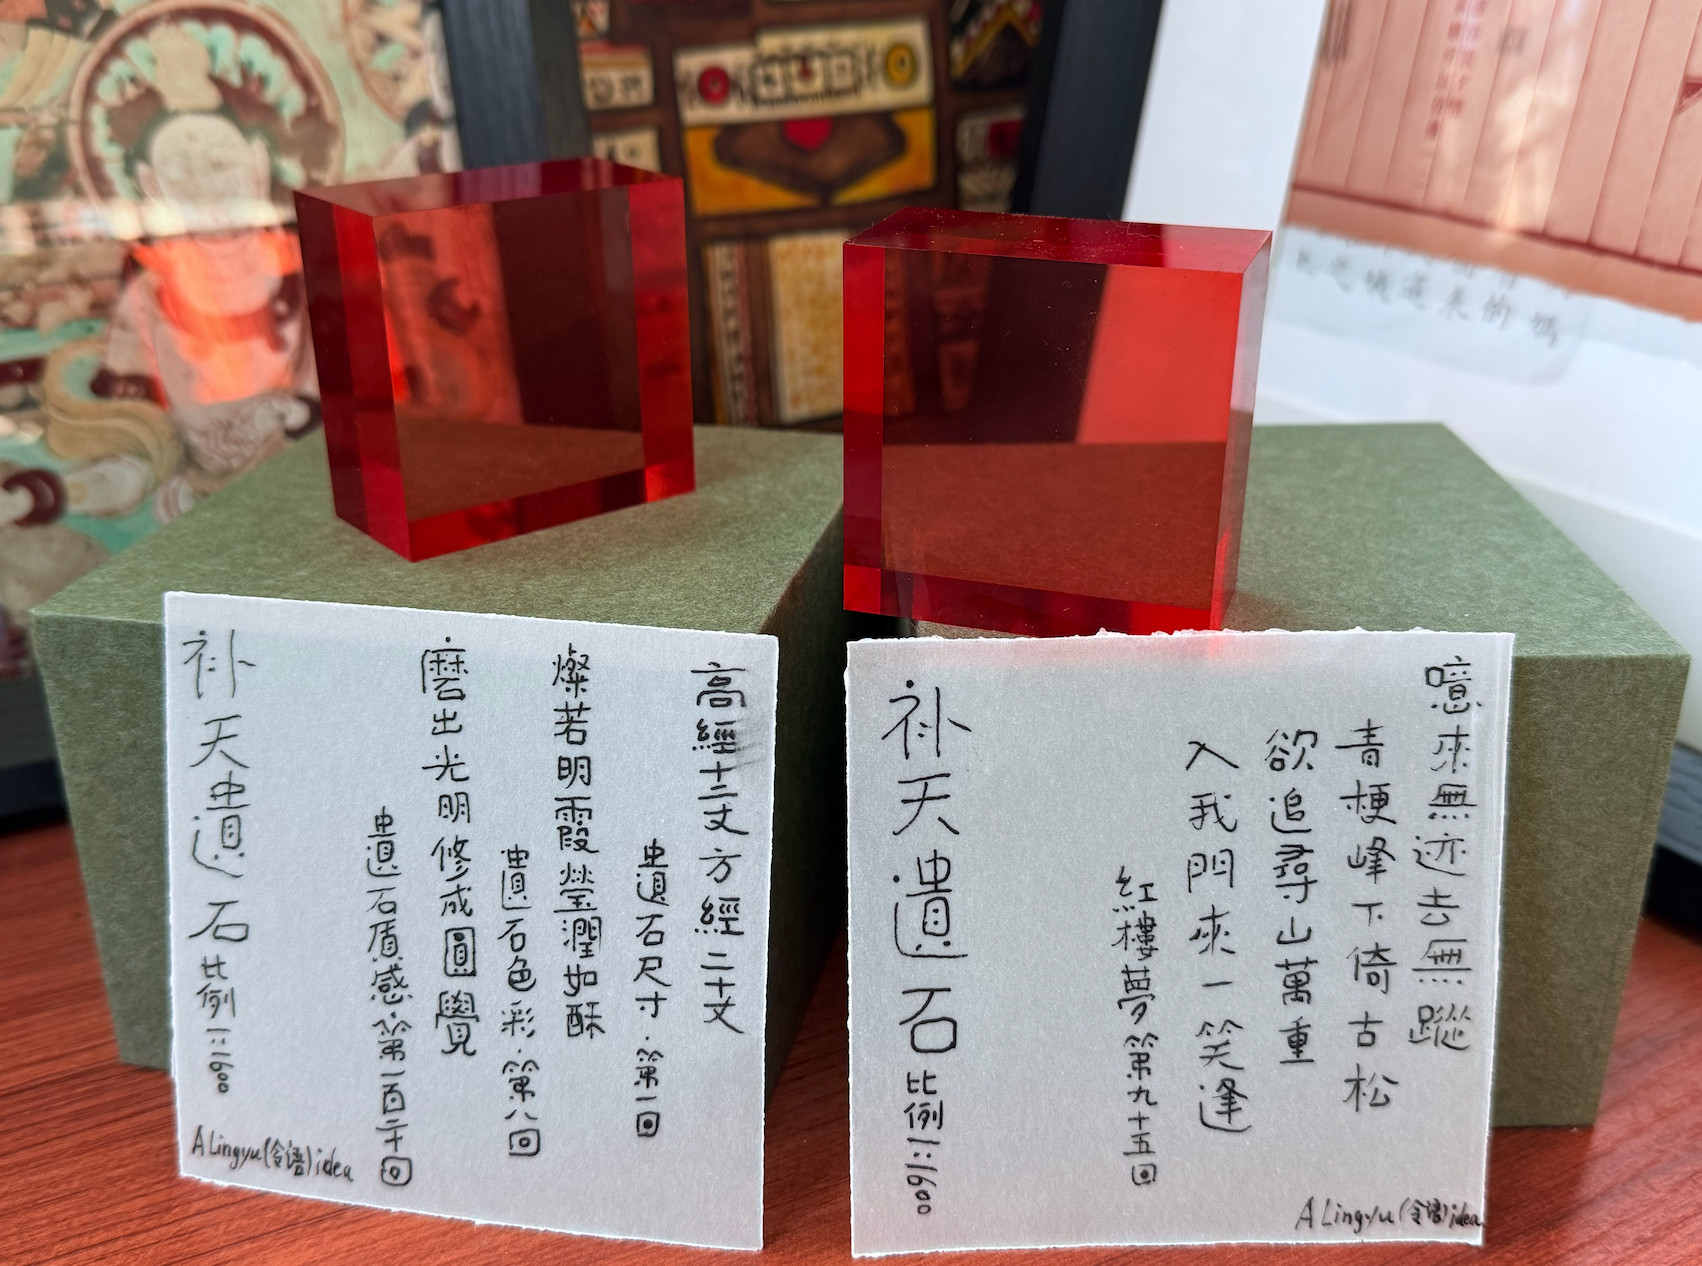 高經十二丈方經二十丈
遺石尺寸·第一回
燦若明霞瑩潤如酥
遺石色彩·第八回
磨出光明修成圓覺
遺石盾感·第一百二十回
补天遺石 比例一:1900
A Lingyu(令语)idea
噫來無迹去無蹤
青梗峰下倚古松
欲追尋山萬重
入我門來一笑逢
紅樓夢第九十五回
补天遺石 比例一:1900
A Lingyu(令语)idea